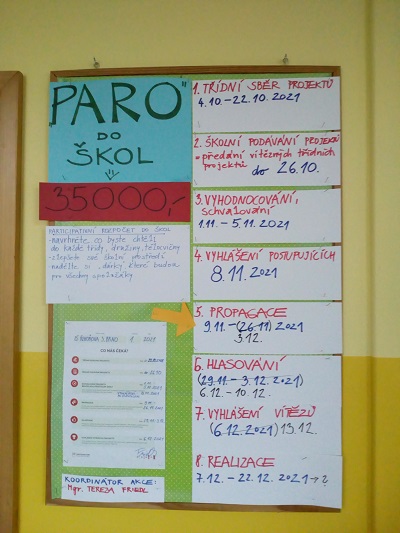 "PARO"
DO
ŠKOL
35000,-
PARTICIPATIVNÍ ROZPOČET DO ŠKOL
-navrhněte, co byste chtěli
do každé třídy, družiny, tělocvičny
-zlepšete své školní prostředí
nadělte si dárky, které budou
pro všechny spolužáky
CO NÁS ČEKÁ?
KOORDINÁTOR AKCE:
Mgr. TEREZA FRIEDL
1. TŘÍDNÍ SBĚR PROJEKTŮ
4.10.-22.10.2021
2. ŠKOLNÍ PODÁVÁNÍ PROJEKTŮ
• předání vítězných třídních
projektů do 26.10.
3. VYHODNOCOVÁNÍ,
schvalování
1.11 - 5.11.2021
4. VYHLÁŠENÍ POSTUPUJÍCÍCH
8.11.2021
5. PROPAGACE
9.11.-(26.11) 2021
3.12.
6. HLASOVÁNÍ
(29.11. - 3.12.2021)
6.12. - 10.12.
7. VYHLÁŠENÍ VÍTĚZŮ
(6.12.2021) 13.12.
8. REALIZACE
7.12. - 22.12.2021 → 2